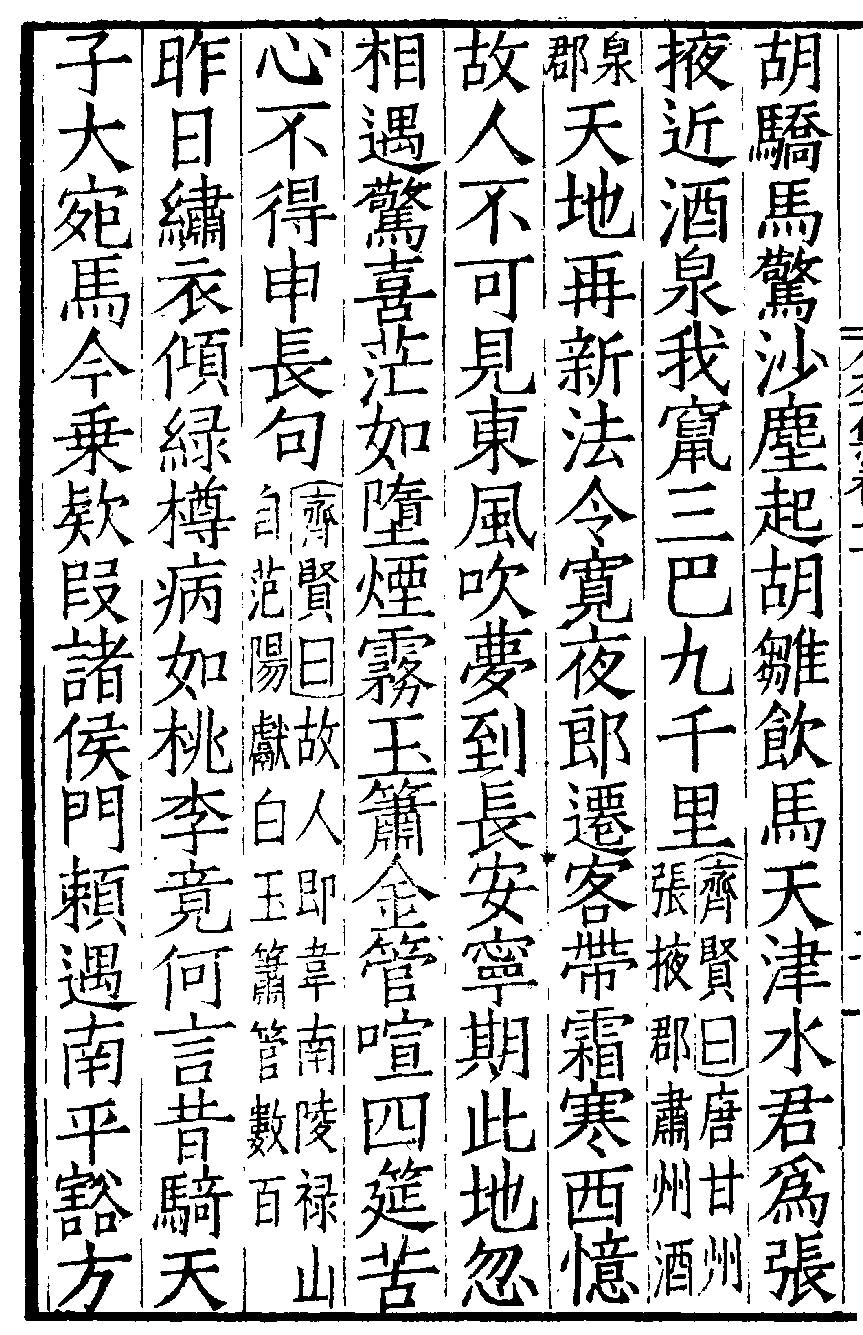 胡驕馬驚沙塵起胡雛飲馬天津水君為張
掖近酒泉我竄三巴九千里齊賢曰唐甘州張掖郡肅州酒
泉郡天地再新法令寬夜郎遷客帶霜寒西憶
故人不可見東風吹夢到長安寧期此地忽
相遇驚喜茫如墮煙霧玉簫金管喧四筵苦
心不得申長句齊賢曰故人即韋南陵禄山自范陽獻白玉簫管數百
昨日繡衣傾緑樽病如桃李竟何言昔騎天
子大宛馬今乗欵段諸侯門賴遇南平豁方